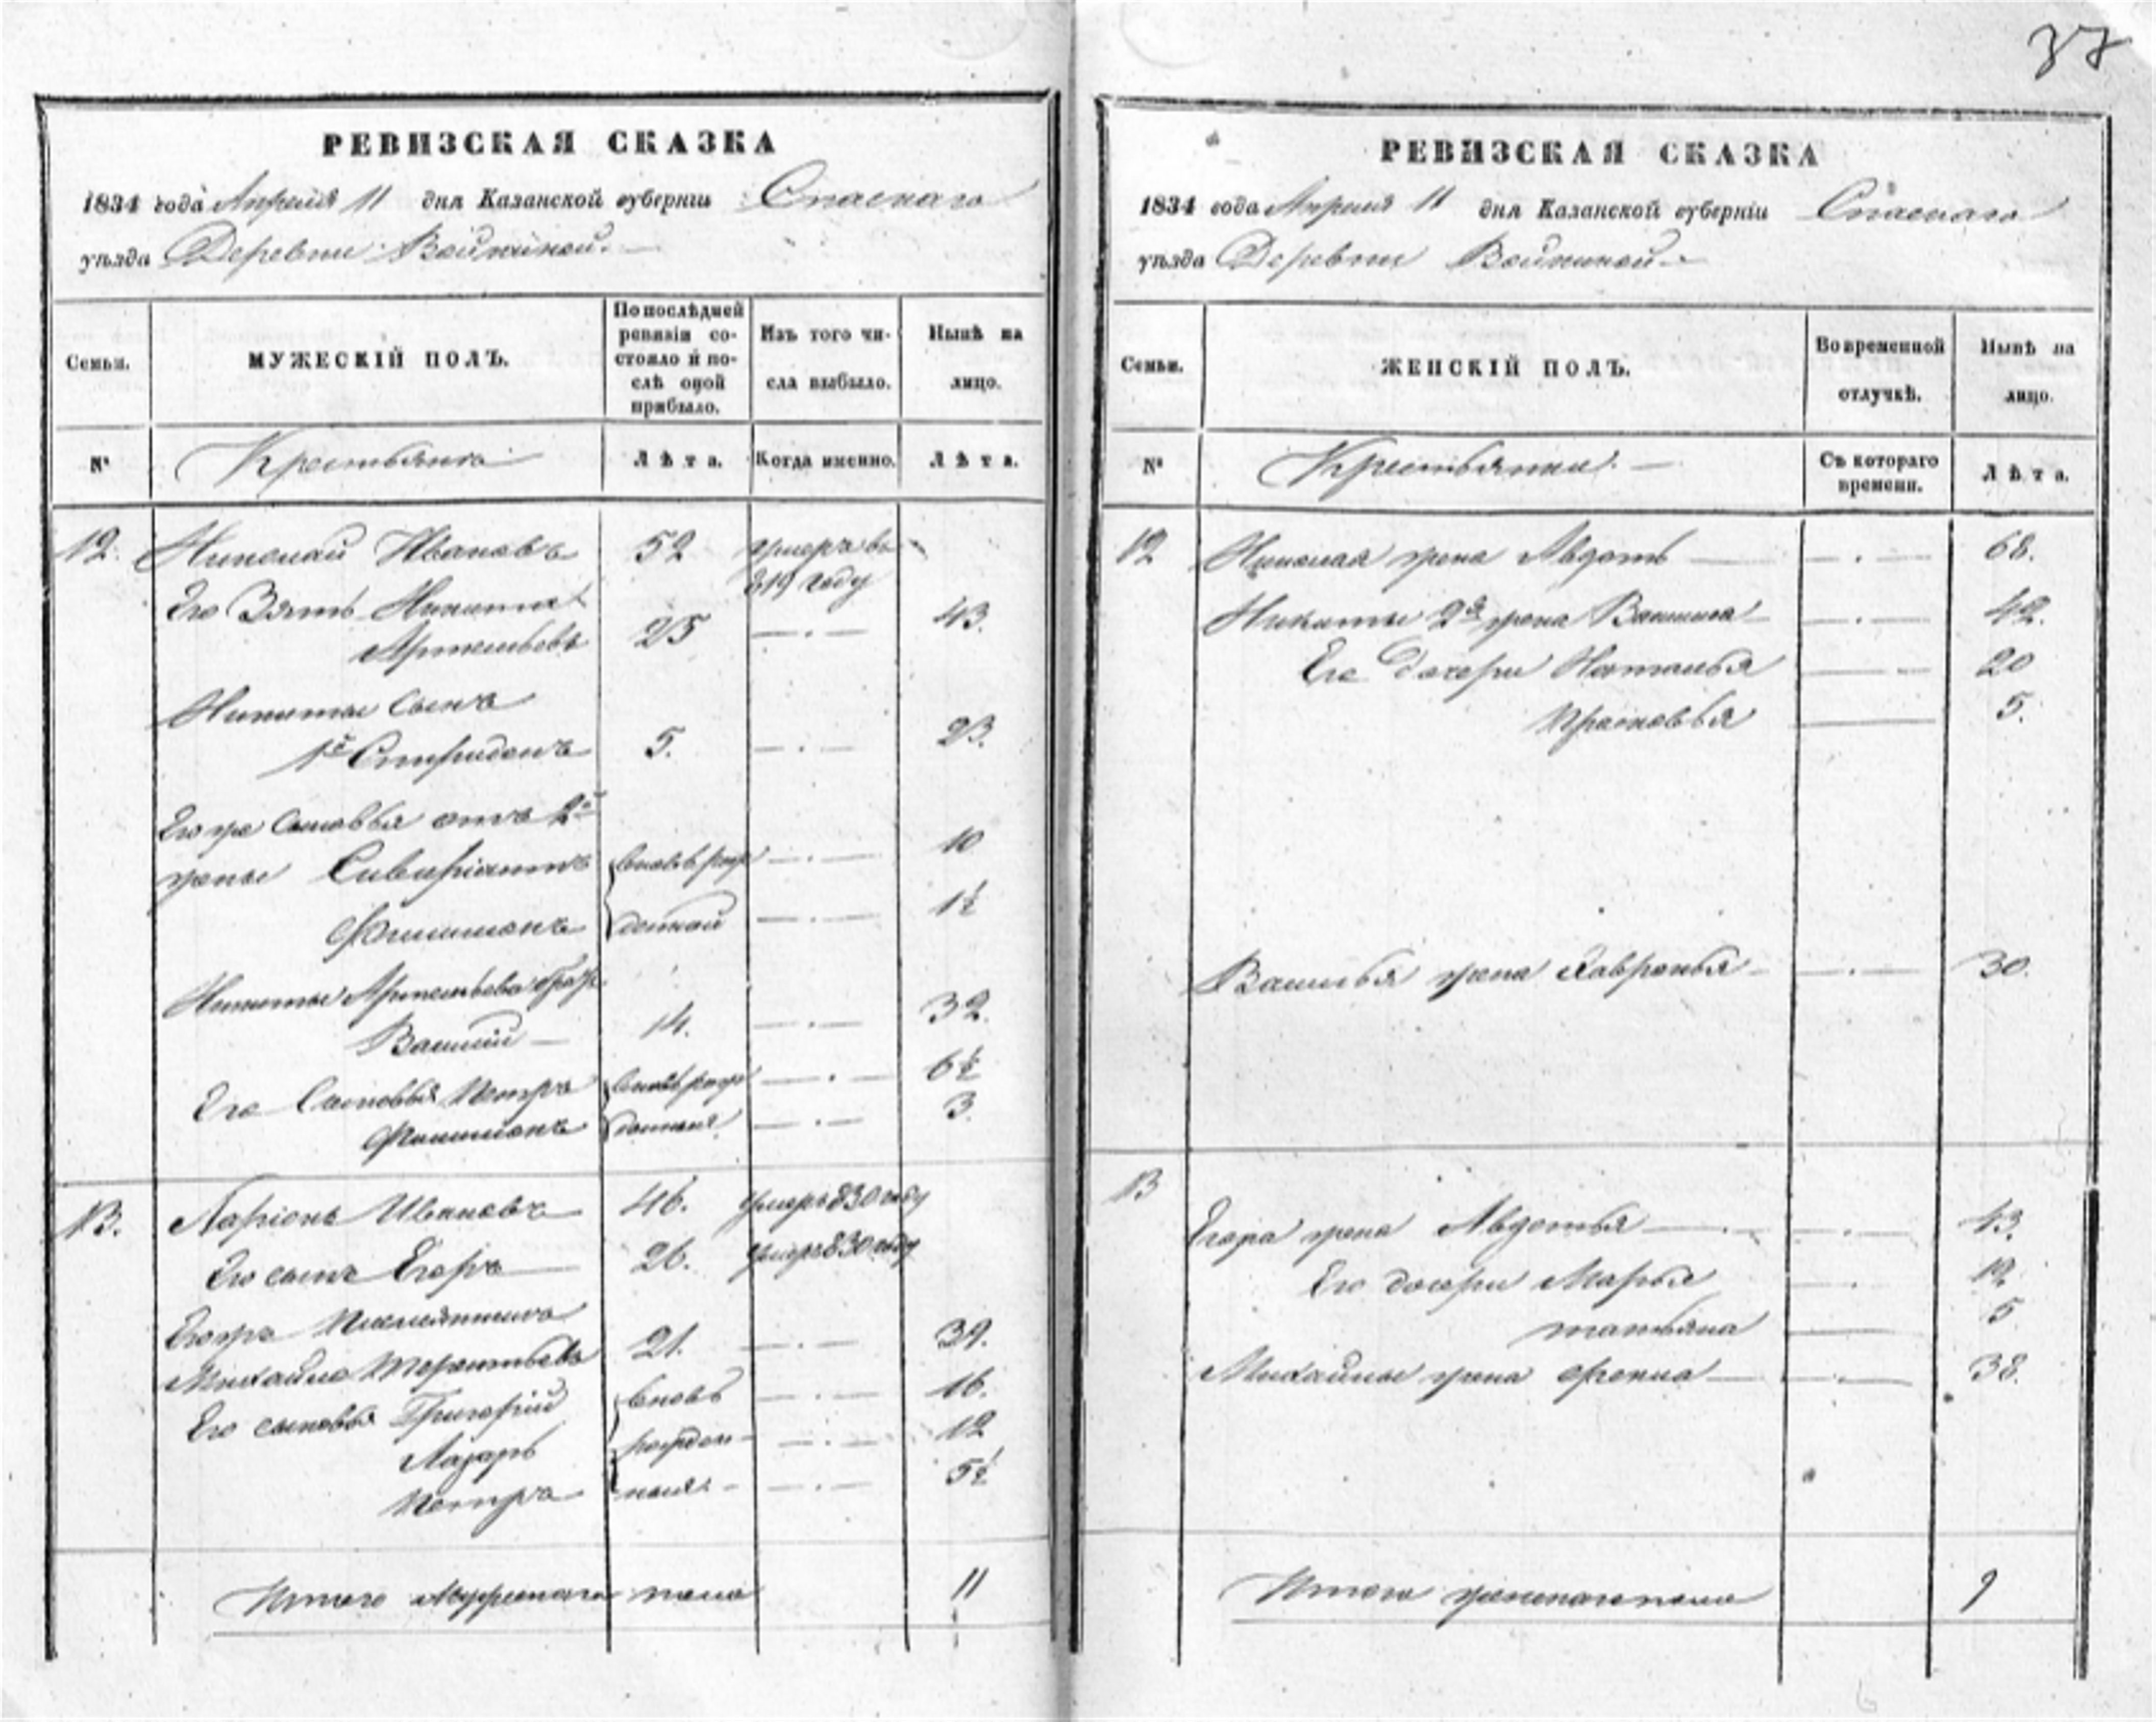 37
РЕВИЗСКАЯ СКАЗКА
1834 года Апреля 11 дня Казанской губерніи Спаскаго
уѣзда Деревни Войкиной.
Семьи.
МУЖЕСКІЙ ПОЛЪ.
По послѣдней ревизіи состояло и послѣ оной прибыло.
Изъ того числа выбыло.
Нынѣ на лицо.
№
Лѣта.
Когда именно.
Лѣта.
12. Николай Ивановъ 52 умеръ въ
819 году
Его Зять Никита
Артемьевъ 25 43.
Никиты Сынъ
1й Спиридонъ 5. 23.
Его же Сыновья отъ 2й
жены 10
Филимонъ 1½
Никиты Артемьева брат
Василий 14. 32.
Его Сыновья Петръ 6½
Филимонъ 3.
13. Ларіонъ Ивановъ 46. умеръ 830 году
Его сынъ Егоръ 26. умеръ 830 году
Егора Племянникъ
Михайла Терентьевъ 21. 39.
Его сыновья Григорій вновь 16.
Лазарь рожден 12
Петръ ныя. 5½
Итого Мужескаго пола 11
РЕВИЗСКАЯ СКАЗКА
1834 года Апреля 11 дня Казанской губерніи Спаскаго
уѣзда Деревни Войкиной
Семьи.
ЖЕНСКІЙ ПОЛЪ.
Во временной отлучкѣ.
Нынѣ на лицо.
№
Крестьянки.
Съ котораго времени.
Лѣта.
12 Николая жена Авдоть 68.
Никиты 2я жена 42.
Его дочери Наталья 20
Прасковья 5.
Василья жена Хавронья 30.
13
Егора жена Авдотья 43.
Его дочери Марья 12
татьяна 5
Михайлы жена 38.
Итого женскаго пола 9